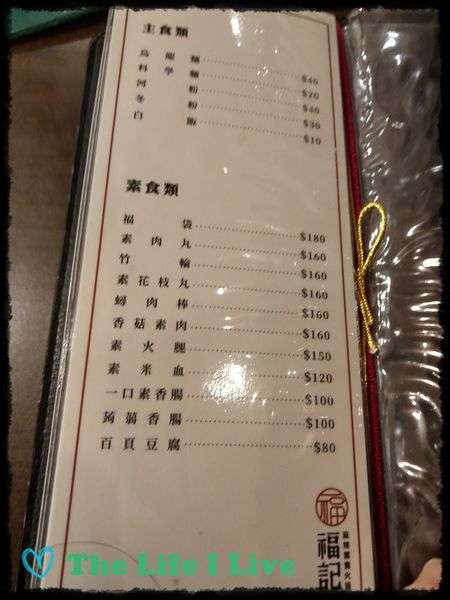 主食類
烏龍麵 $40
科學麵 $20
河粉 $40
冬粉 $30
白飯 $10
素食類
福袋 $180
素肉丸 $160
竹輪 $160
素花枝丸 $160
蟳肉棒 $160
香菇素肉 $160
素火腿 $150
素米血 $120
一口素香腸 $100
蒟蒻香腸 $100
百頁豆腐 $80
福
福記
The Life I Live